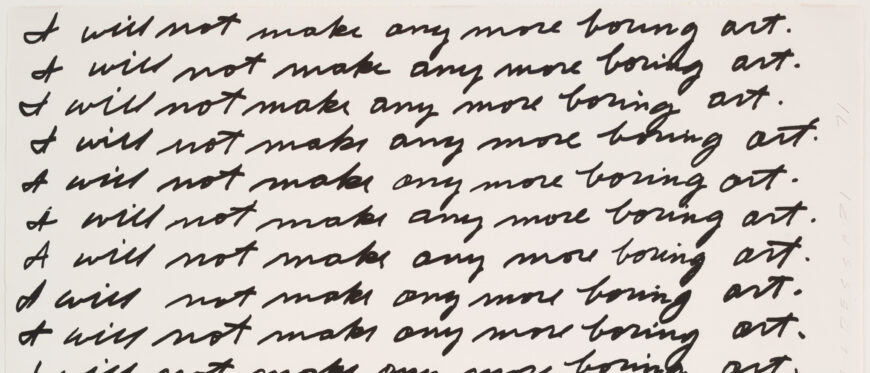 I will not make any more boring art.
I will not make any more boring art.
I will not make any more boring art.
I will not make any more boring art.
I will not make any more boring art.
I will not make any more boring art.
I will not make any more boring art.
I will not make any more boring art.
I will not make any more boring art.
I will not make any more boring art.